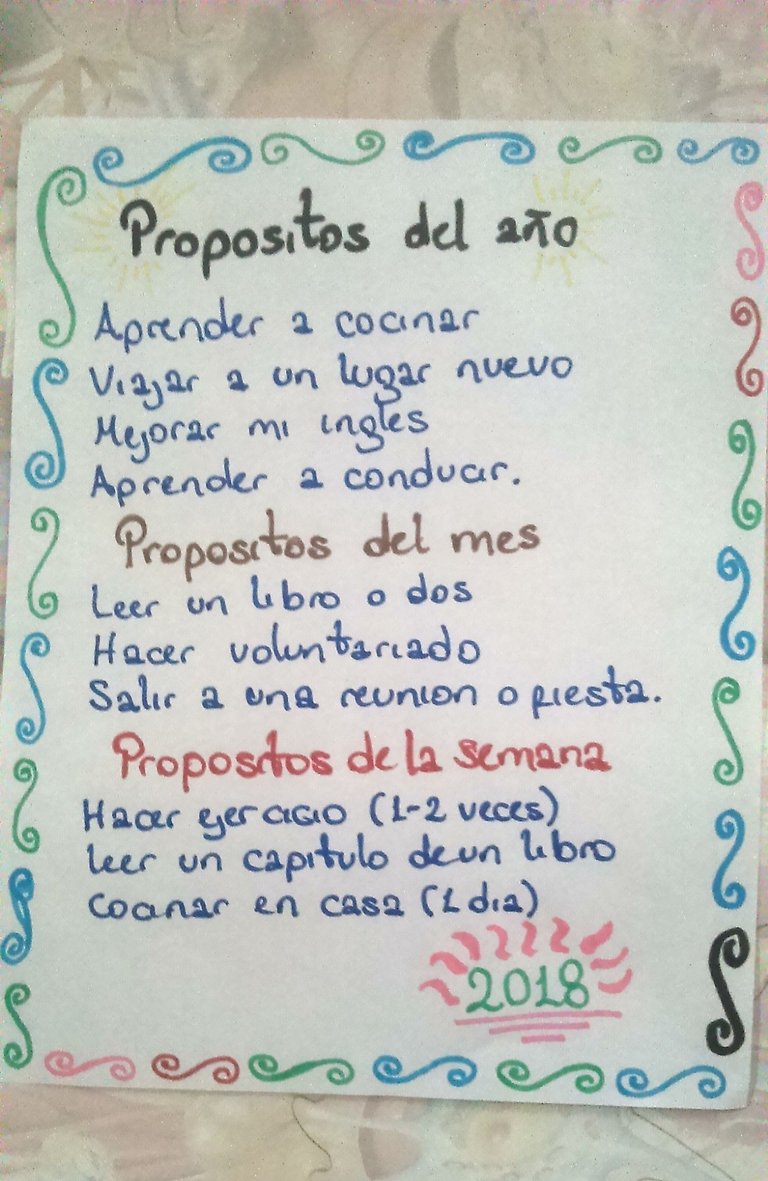 Propositos del año
Aprender a cocinar
Viajar a un lugar nuevo
Mejorar mi ingles
Aprender a conducir.
Propositos del mes
Leer un libro o dos
Hacer voluntariado
Salir a una reunion o fiesta.
Propositos de la semana
Hacer ejercicio (1-2 veces)
Leer un capitulo de un libro
Cocinar en casa (1 dia)
2018